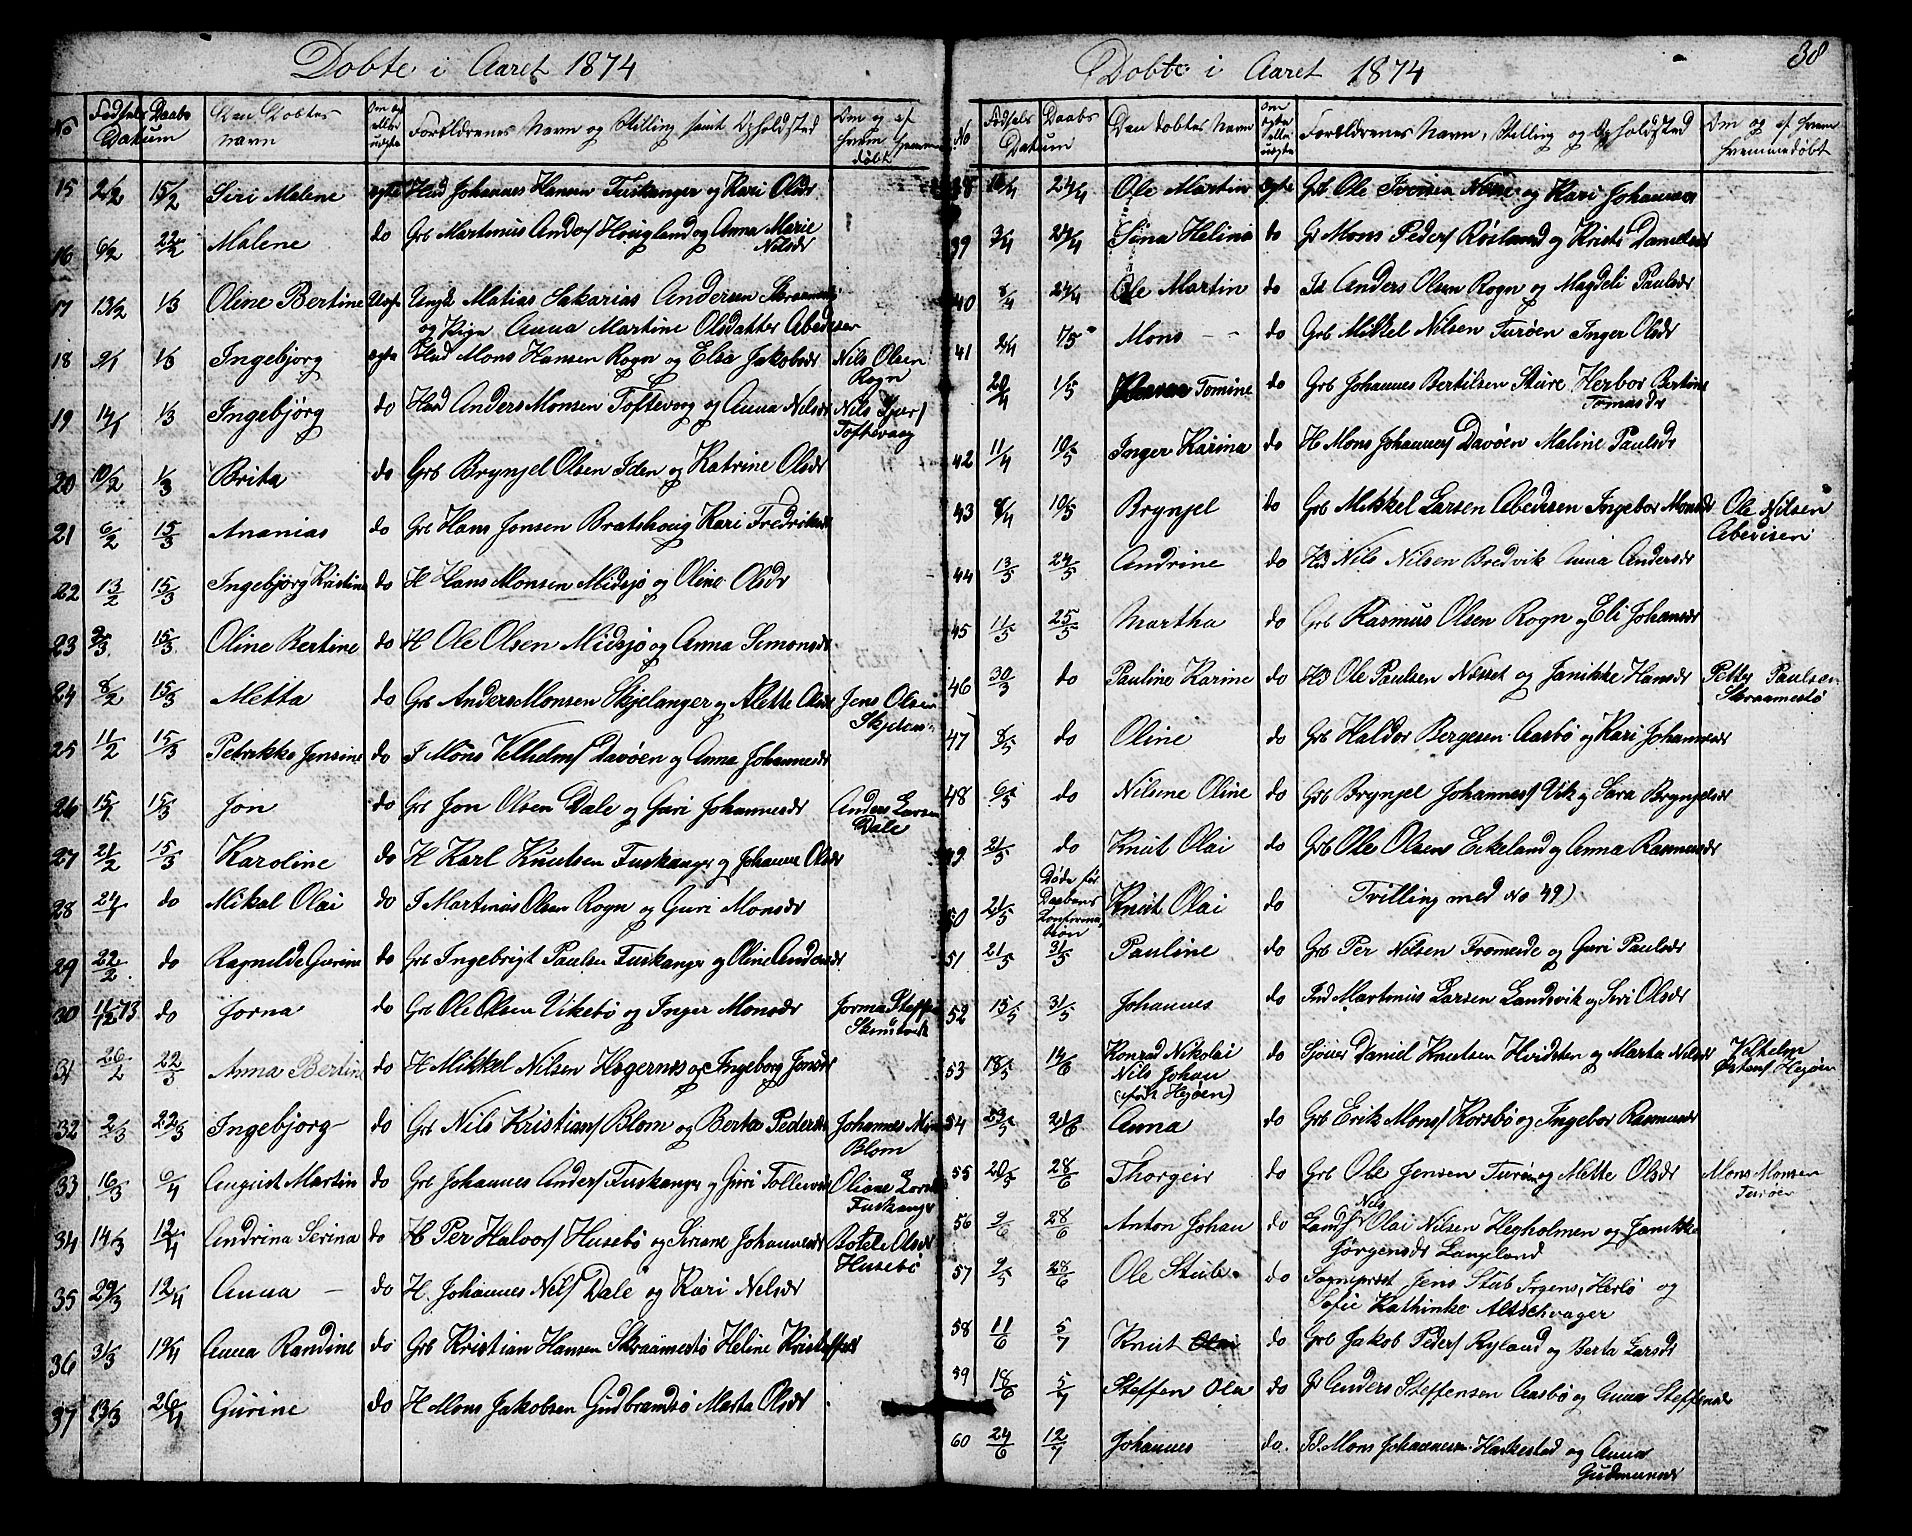 Døbte i Aaret 1874
No
Fødsels Daabs
Datum
Den Døbtes
Navn
Om ægte
eller
uægte
Forældrenes Navn og Stilling samt Opholdsted
Om og af
hvem hjemme
døbt
15 2/2 15/2 Siri Malene ægte Hsd Johannes Hansen Fuskanger og Kari Olsdr
16 6/2 22/2 Malene do Grb Martinus Anders Hougland og Anna Marie
Nilsdr
17 13/2 1/3 Oline Bertine Uægte Ungk Matias Sakarias Andersen
og Pige Anna Martine Olsdatter Abedisen
18 1/3 Ingebjorg ægte Hsd Mons Hansen Rogn og Else Jakobsdr Nils Olsen
Rogn
19 14/1 1/3 Ingebjørg do Hsd Anders Monsen Toftevog og Anna Nilsdr Nils
Toftevaag
20 10/2 1/3 Brita do Grb Brynjel Olsen Iden og Katrine Olsdr
21 6/2 15/3 Ananias do Grb Hans Jonsen Bratshoug Kari
22 13/2 15/3 Ingebjörg Kristine do H Hans Monsen Midsjø og Oline Olsdr
23 15/3 Oline Bertine do H Ole Olsen Midsjø og Anna Simonsdr
24 8/2 15/3 Metta do Grb Anders Monsen Skjelanger og Alette Olsdr Jens Olsen
25 11/2 15/3 Petrikke Jensine do I Mons Velhelms Davøen og Anna Johannesdr
26 15/3 Jon do Grb Jon Olsen Dale og Guri Johannesdr Anders Larsen
Dale
27 21/2 15/3 Karoline do H Karl Knutsen Fuskanger og Johanna Olsdr
28 do Mikal Olai do I Martinus Olsen Rogn og Guri Monsdr
29 22/2 do Ragnilde Gurine do Grb Ingebrigt Paulsen Fuskanger og Oline Andersdr
30 11/12 73 do Jorna do Grb Ole Olsen Vikebø og Inger Monsdr Jorma
31 26/2 22/3 Anna Bertine do H Mikkel Nilsen Hogernes og Ingeborg Jonsdr
32 2/3 22/3 Ingebjorg do Grb Nils Kristians Blom og Berta Pedersdr Johannes
Blom
33 16/3 6/4 August Martin do Grb Johannes Anders Fuskanger og Guri Oliane
Fuskanger
34 14/3 12/4 Andrina Serina do H Per Halvors Husebø og Siriane Johannesdr Botele Olsdr
Husebø
35 29/3 12/4 Anna do H. Johannes Nels Dale og Kari Nelsdr
36 31/3 Anna Randine do Grb Kristian Hansen Skraamestø Heline
37 13/3 26/4 Gurine do H Mons Jakobsen Gudbrandsø Marta Olsdr
Døbte i Aaret 1874
38
No
Fødsels Daabs
Datum
Den døbtes Navn
Om
ægte
eller
uægte
Forældrenes Navn, Stilling og Opholdsted
Om og af hvem
hjemmedøbt
38 24/4 Ole Martin ægte Grb Ole Iversen og Kari Johannesdr
39 3/4 24/4 Sina Helina do Mons Peders Røsland og Kristi Danielsdr
40 8/4 24/4 Ole Martin do Anders Olsen Rogn og Magdeli Paulsdr
41 1/5 Mons do Grb Mikkel Nilsen Turøen Inger Olsdr
1/5 Tomine do Grb Johannes Bertilsen Sture Herbor Bertine
Tomasdr
42 11/4 10/5 Inger Karina do H Mons Johannes Davøen Maline Paulsdr
43 8/4 10/5 Brynjel do Grb Mikkel Larsen Abedisen Ingebor Monsdr Ole Nilsen
Abedisen
44 13/5 24/5 Andrine do Hs Nils Nilsen Bredvik Anna Andersdr
45 11/5 25/5 Martha do Grb Rasmus Olsen Rogn og Eli Johansdr
46 30/3 do Pauline Karine do Hs Ole Paulsen Nesset og Janikke Hansdr Petter Paulsen
Skraamestø
47 8/5 do Oline do Grb Haldor Bergesen Aasbø og Kari Johannesdr
48 6/5 do Nilsine Oline do Grb Brynjel Johannes Vik og Sara Brynjelsdr
49 21/5 do Knut Olai do Grb Ole Olsens Eikeland og Anna Rasmusdr
50 21/5 Døde før
Daabens
Konforma
tion Knut Olai do Tvilling med No 49)
51 21/5 31/5 Pauline do Grb Per Nilsen Fromreide og Guri Paulsdr
52 15/5 31/5 Johannes do Ind Martinus Larsen Landsvik og Siri Olsdr
53 18/5 14/6 Konrad Nikolai
Nils Johan
(født Hejøen) do Daniel Knutsen Hvidsten og Marta Nilsdr Vilhelm
Østens Hejøen
54 23/5 21/6 Anna do Grb Erik Mons Korsbø og Ingebor Rasmusdr
55 20/5 28/6 Thorgeir do Grb Ole Jensen Turøen og Mette Olsdr Mons Monsen
Turøen
56 9/6 28/6 Anton Johan do Nils Olai Nilsen Hegholmen og Janikke
Jørgensdr Langeland
57 9/5 28/6 Ole Stub do Sognepræst Jens Stub Irgens, Herlø og
Sofie Kathinke Altschvager
58 11/6 5/7 Knut Olai do Grb Jakob Peders Ryland og Berta Larsdr
59 18/6 5/7 Steffen Ole do Anders Steffensen Aasbø og Anna Steffensdr
60 24/6 12/7 Johannes do. Mons Johannesen Harkestad og Anna
Gudmunsdr